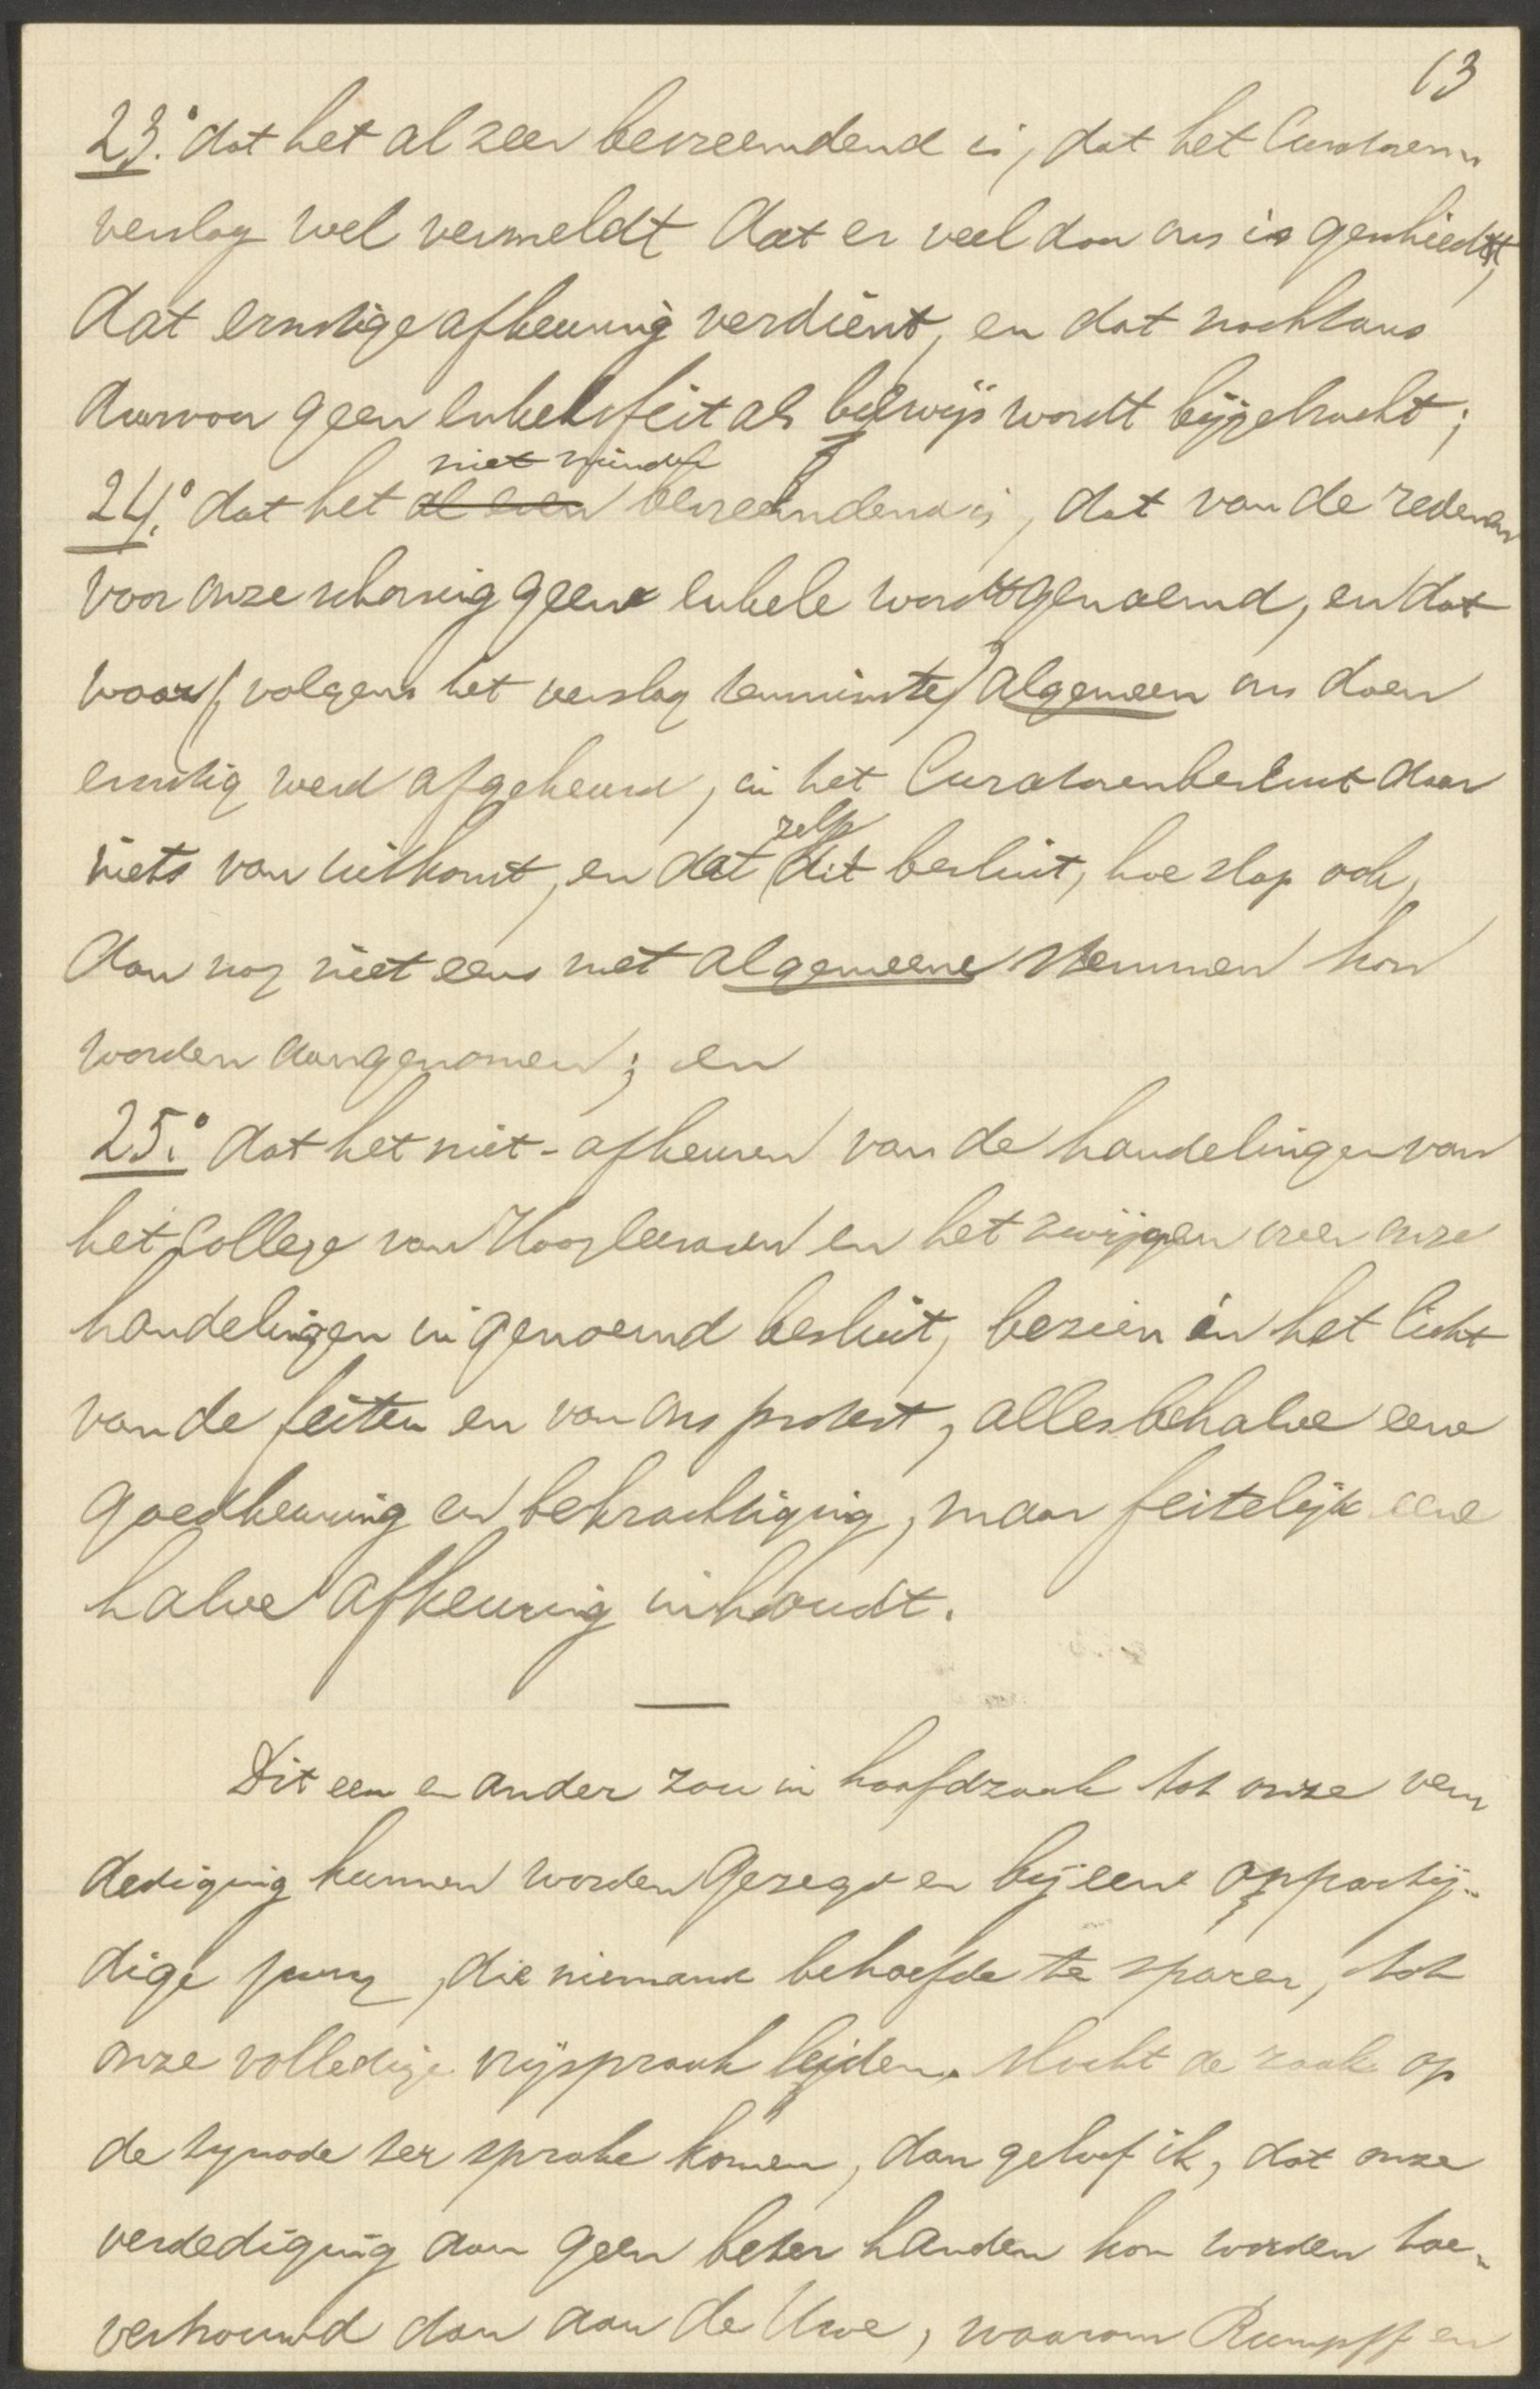 13
23.° dat het al zeer bevreemdend is, dat het Curatoren„
verslag wel vermeldt dat er veel door ons is geschiedt,
dat ernstige afkeuring verdient, en dat nochtans
daarvoor geen enkel feit als bewijs wordt bijgebracht;
niet minder
24.° dat het al zeer bevreemdend is, dat van de redenen
voor onze schorsing geene enkele wordt genoemd, en dat
waar (volgens het verslag tenminste) algemeen ons doen
ernstig werd afgekeurd, in het Curatorenbesluit daar
niets van uitkomt, en dat zelfs dit besluit, hoe slap ook,
dan nog niet eens met algemeene stemmen kon
worden aangenomen; en
25.° dat het niet-afkeuren van de handelingen van
het College van Hoogleeraren en het zwijgen over onze
handelingen in genoemd besluit, bezien in het licht
van de feiten en van ons protest, allesbehalve eene
goedkeuring en bekrachtiging, maar feitelijk eene
halve afkeuring inhoudt.
—
Dit een en ander zou in hoofdzaak tot onze ver„
dediging kunnen worden gezegd en bij eene onpartij„
dige jury, die niemand behoefde te sparen, tot
onze volledige vrijspraak leiden. Mocht de zaak op
de synode ter sprake komen, dan geloof ik, dat onze
verdediging aan geen beter handen kon worden toe„
vertrouwd dan aan de Uwe, waarom Rumpff en